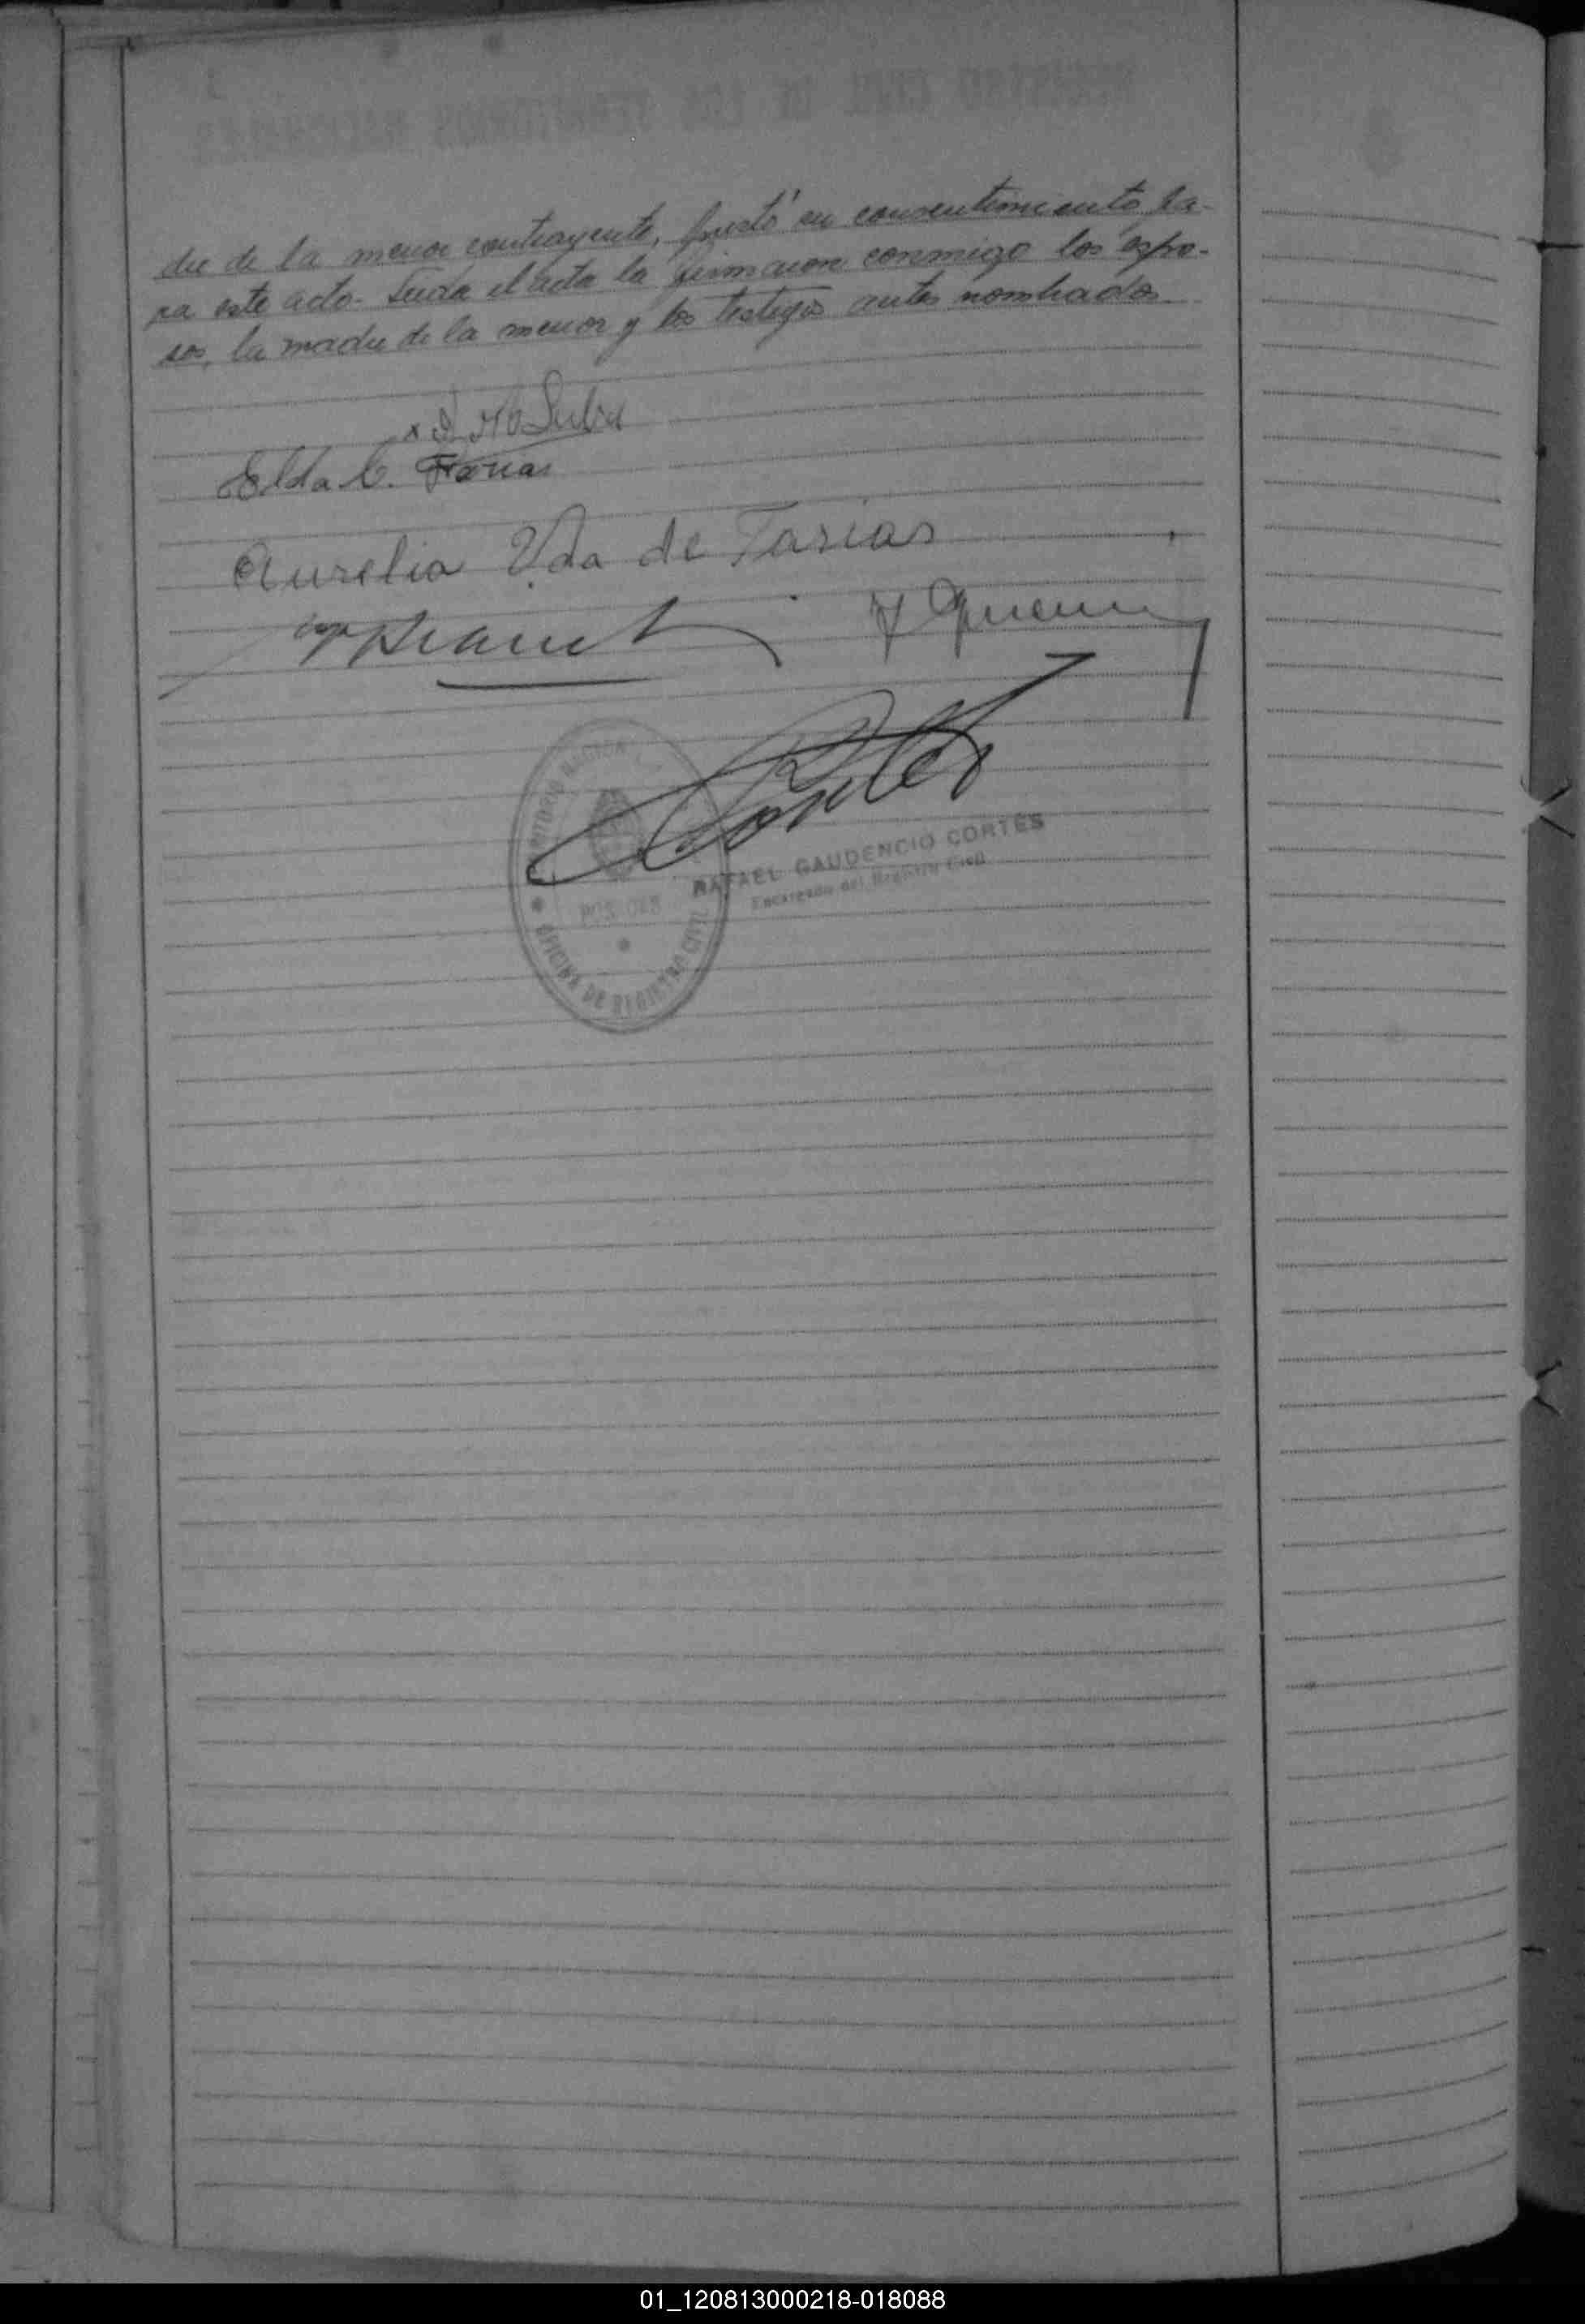 dre de la menor contrayente, prestó su consentimiento pa-
ra este acto. Leída el acta la firmaron conmigo los espo-
sos, la madre de la menor y los testigos antes nombrados.
Elda C. Farias
Aurelia Vda de Farias
Cortés
RAFAEL GAUDENCIO CORTÉS
Encargado del Registro Civil
OFICINA DE REGISTRO CIVIL
01_120813000218-018088